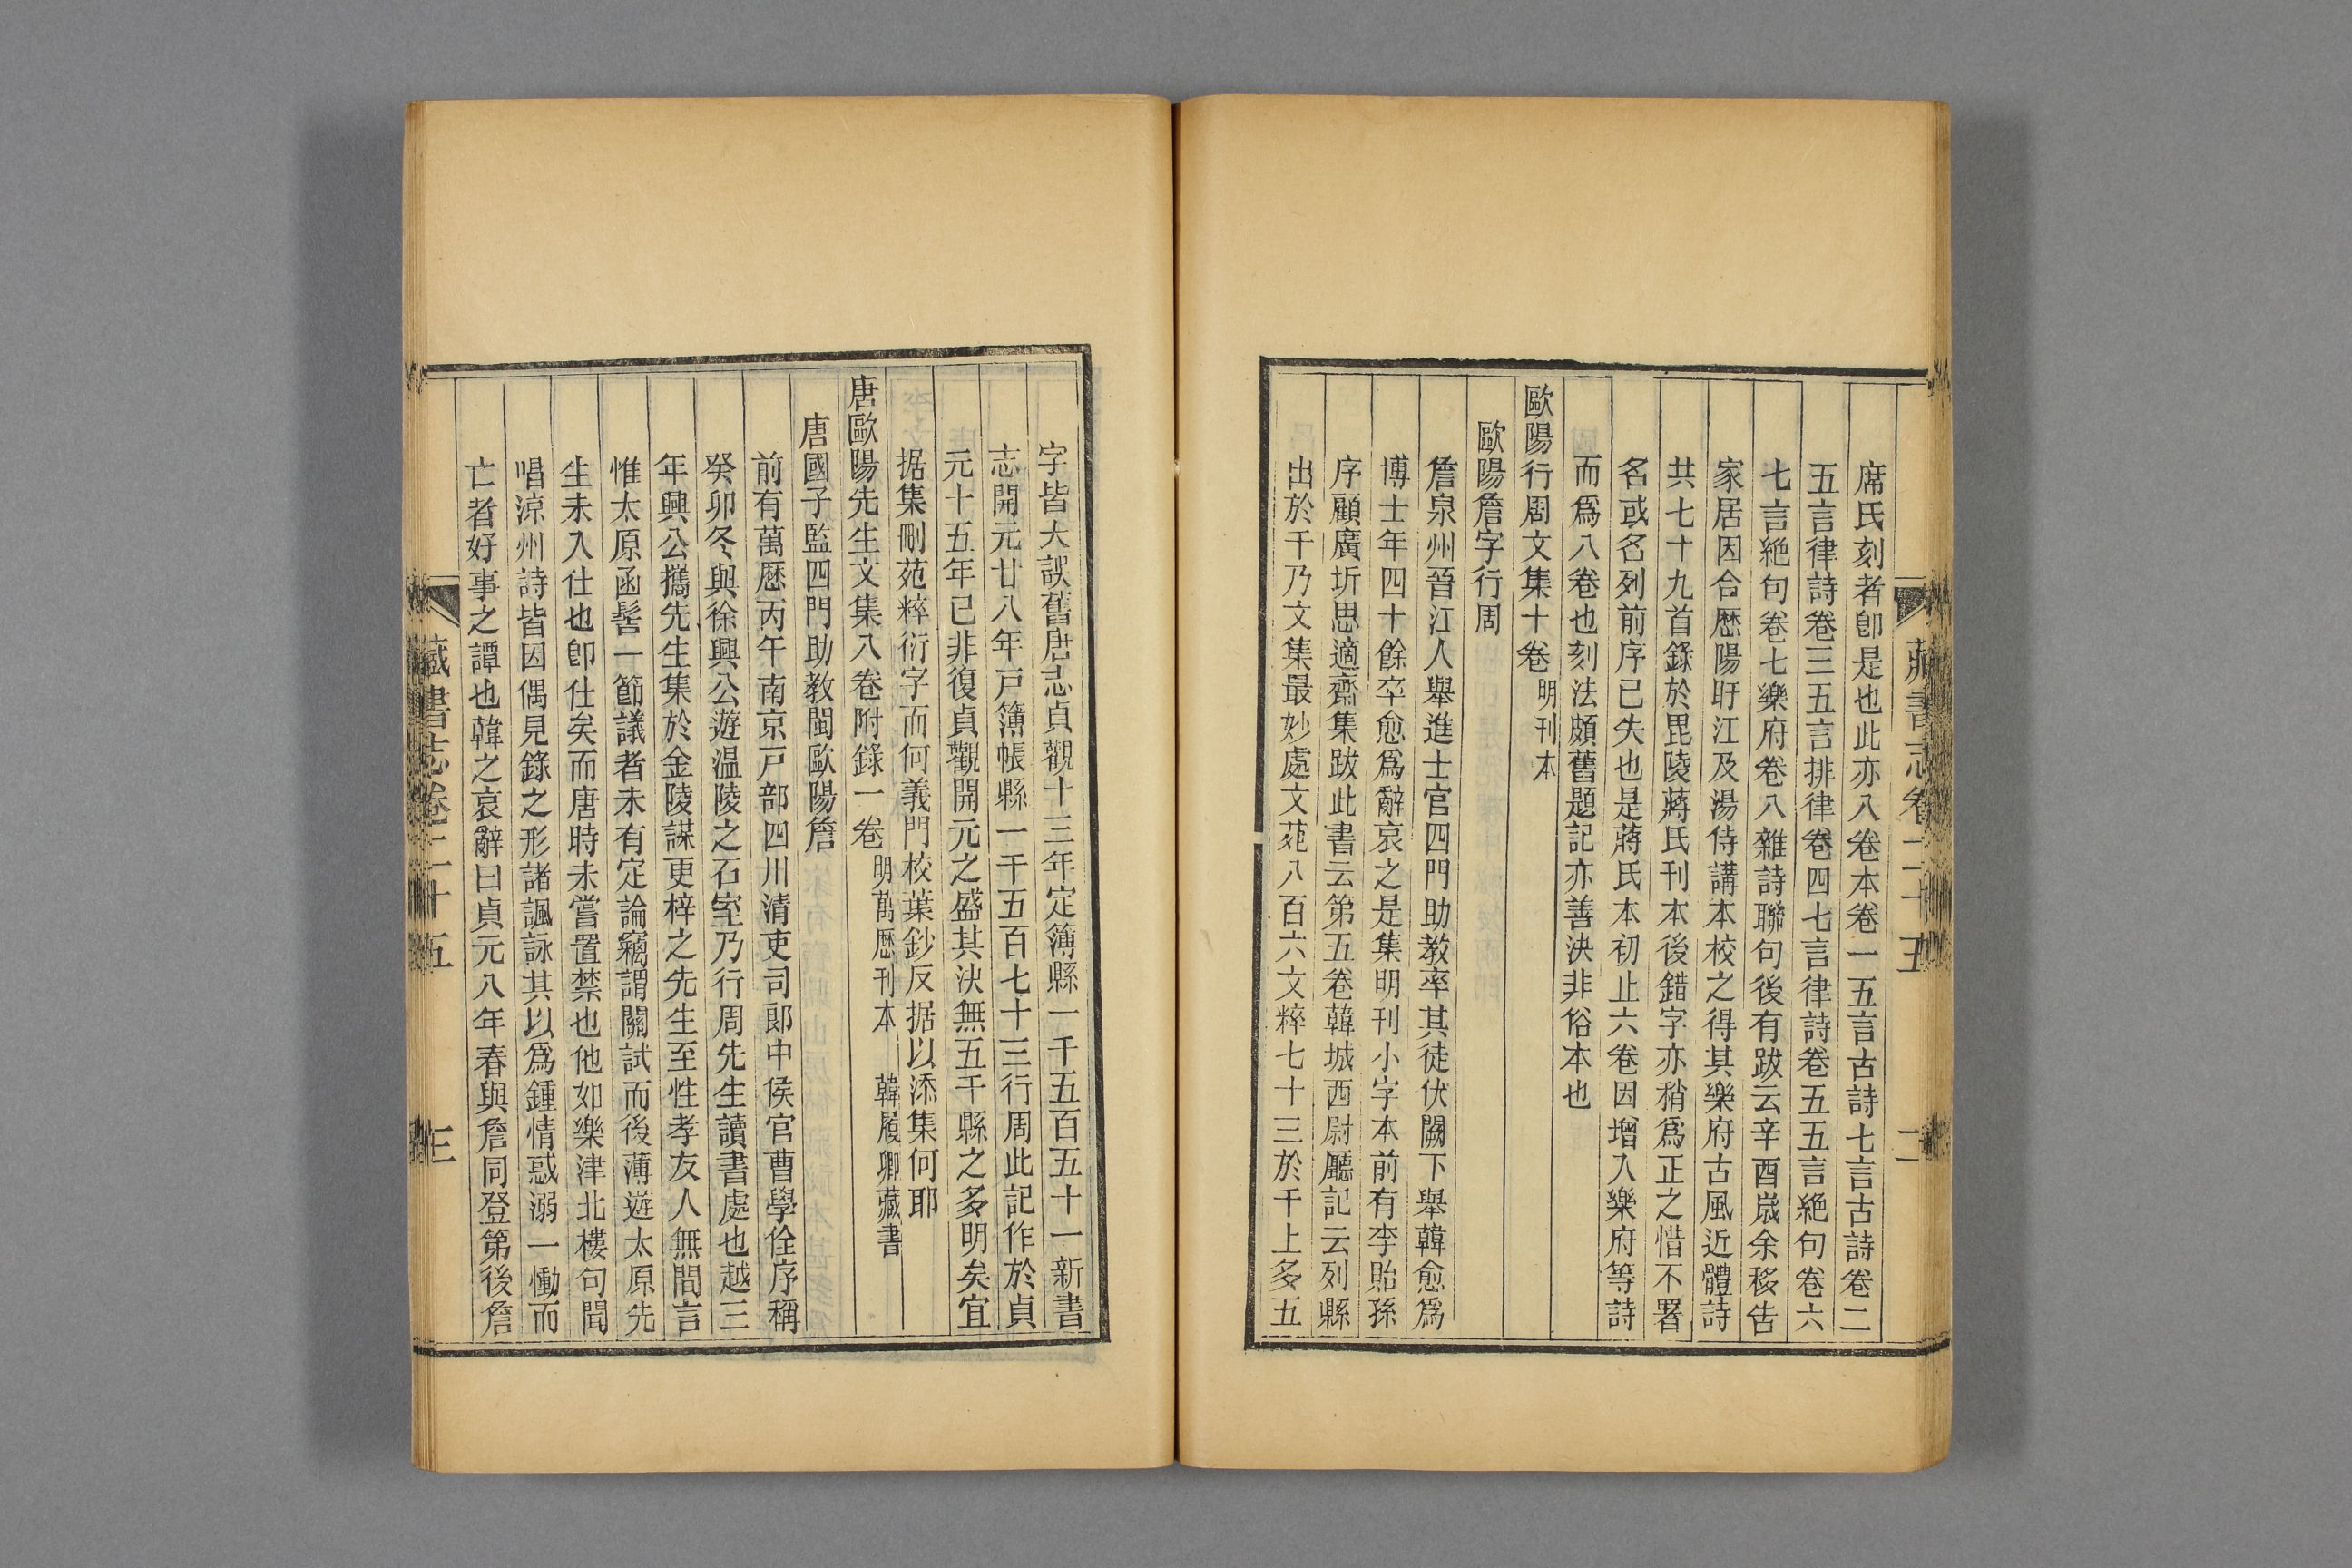 藏書志卷二十五
二
席氏刻者卽是也此亦八卷本卷一五言古詩七言古詩卷二
五言律詩卷三五言排律卷四七言律詩卷五五言絶句卷六
七言絶句卷七樂府卷八雜詩聯句後有跋云辛酉嵗余移告
家居因合歴陽盱江及湯侍講本校之得其樂府古風近體詩
共七十九首錄於毘陵蔣氏刊本後錯字亦稍爲正之惜不署
名或名列前序已失也是蔣氏本初止六卷因增入樂府等詩
而爲八卷也刻法頗舊題記亦善決非俗本也
歐陽行周文集十卷 明刊本
歐陽詹字行周
詹泉州晉江人舉進士官四門助教率其徒伏闕下舉韓愈爲
博士年四十餘卒愈爲辭哀之是集明刊小字本前有李貽孫
序顧廣圻思適齋集跋此書云第五卷韓城西尉廳記云列縣
出於千乃文集最妙處文苑八百六文粹七十三於千上多五
字皆大誤舊唐志貞觀十三年定簿縣一千五百五十一新書
志開元廿八年戸簿帳縣一千五百七十三行周此記作於貞
元十五年已非復貞觀開元之盛其決無五千縣之多明矣宜
据集刪苑粹衍字而何義門校葉鈔反据以添集何耶
唐歐陽先生文集八卷附錄一卷 明萬歴刊本 韓履卿藏書
唐國子監四門助教閩歐陽詹
前有萬歴丙午南京戸部四川清吏司郎中侯官曹學佺序稱
癸卯冬與徐興公遊温陵之石室乃行周先生讀書處也越三
年興公攜先生集於金陵謀更梓之先生至性孝友人無間言
惟太原函髻一節議者未有定論竊謂關試而後薄遊太原先
生未入仕也卽仕矣而唐時未嘗置禁也他如樂津北樓句聞
唱涼州詩皆因偶見錄之形諸諷詠其以爲鍾情惑溺一慟而
亡者好事之譚也韓之哀辭曰貞元八年春與詹同登第後詹
藏書志卷二十五
三